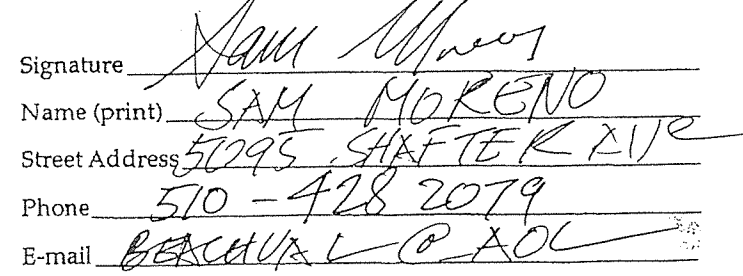 Signature Sam Moreno
Name (print) SAM MORENO
Street Address 5095 SHAFTER AVe
Phone 510-428 2079
E-mail BEACHVAL@AOL